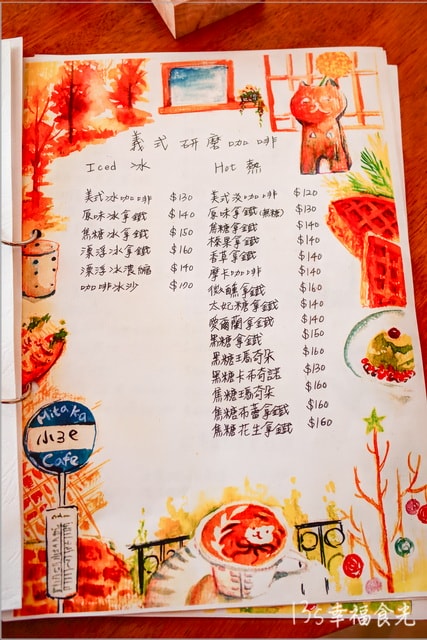 義式研磨咖啡
Iced 冰
美式冰咖啡 $130
原味冰拿鐵 $140
焦糖冰拿鐵 $150
漂浮冰拿鐵 $160
漂浮冰濃縮 $140
咖啡冰沙
Hot 熱
美式淡咖啡 $120
原味拿鐵(無糖) $130
焦糖拿鐵 $140
榛果拿鐵 $140
香草拿鐵 $140
摩卡咖啡 $140
微醺拿鐵 $160
太妃糖拿鐵 $140
愛爾蘭拿鐵 $140
黑糖拿鐵 $150
黑糖瑪奇朵 $160
黑糖卡布奇諾 $130
焦糖瑪奇朵 $160
焦糖布蕾拿鐵 $160
焦糖花生拿鐵 $160
Mitaka
Cafe
幸福食光